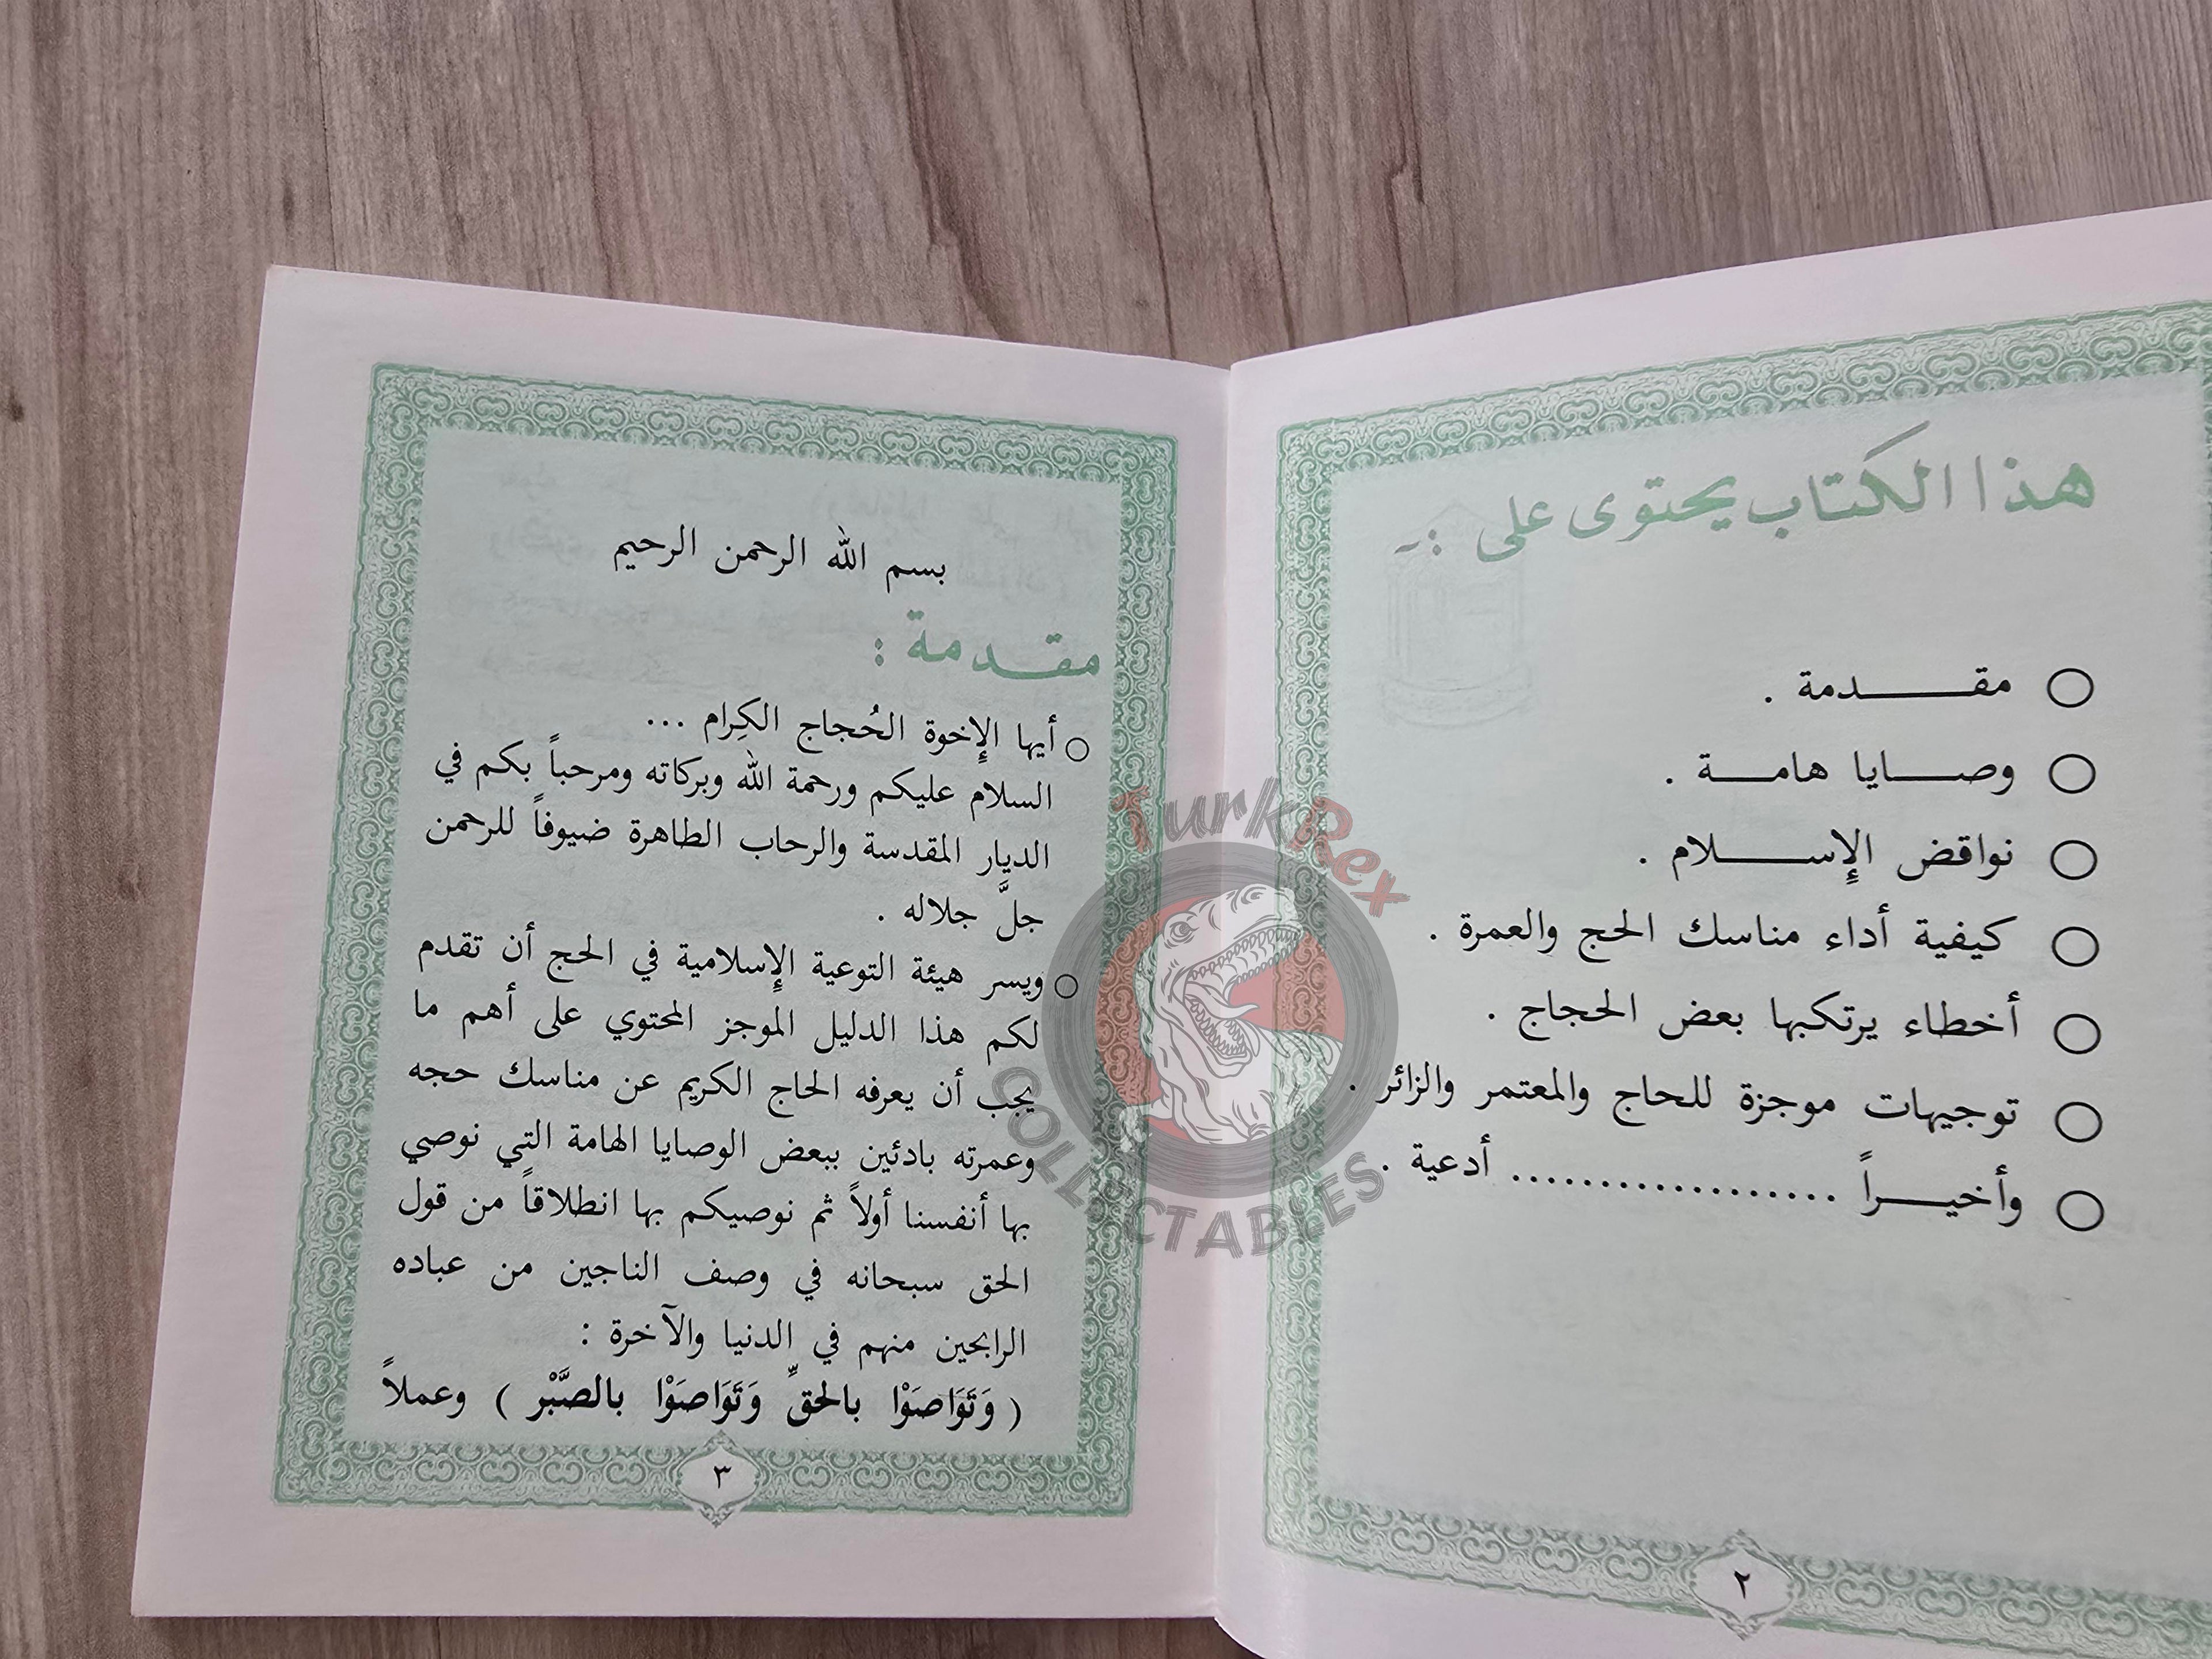 هذا الكتاب يحتوى على :ـ
مقـــــدمة .
وصـــايا هامـــة .
نواقض الإِســـــلام .
كيفية أداء مناسك الحج والعمرة .
أخطاء يرتكبها بعض الحجاج .
توجيهات موجزة للحاج والمعتمر والزائر .
وأخيـــراً ................... أدعية .
٢
بسم الله الرحمن الرحيم
مقـدمة :
أيها الإِخوة الحُجاج الكِرام ...
السلام عليكم ورحمة الله وبركاته ومرحباً بكم في
الديار المقدسة والرحاب الطاهرة ضيوفاً للرحمن
جلَّ جلاله .
ويسر هيئة التوعية الإِسلامية في الحج أن تقدم
لكم هذا الدليل الموجز المحتوي على أهم ما
يجب أن يعرفه الحاج الكريم عن مناسك حجه
وعمرته بادئين ببعض الوصايا الهامة التي نوصي
بها أنفسنا أولاً ثم نوصيكم بها انطلاقاً من قول
الحق سبحانه في وصف الناجين من عباده
الرابحين منهم في الدنيا والآخرة :
( وَتَوَاصَوْا بالحقِّ وَتَوَاصَوْا بالصَّبْر ) وعملاً
٣
TurkRex
COLLECTABLES